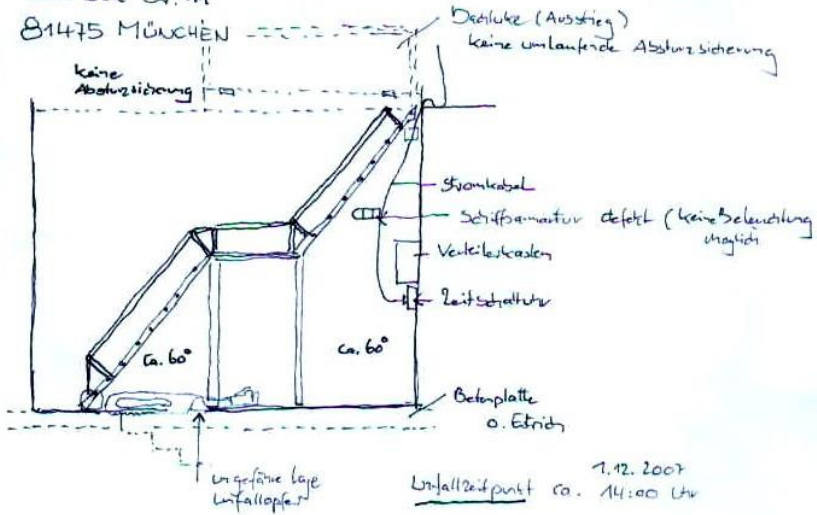 81475 MÜNCHEN
Dachluke (Ausstieg)
keine umlaufende Absturzsicherung
keine
Absturzsicherung
Stromkabel
Schiffsarmatur defekt (keine Beleuchtung
möglich
Verteilerkasten
Zeitschaltuhr
ca. 60°
ca. 60°
Betonplatte
o. Estrich
ungefähre Lage
Unfallopfer
1.12.2007
Unfallzeitpunkt ca. 14:00 Uhr